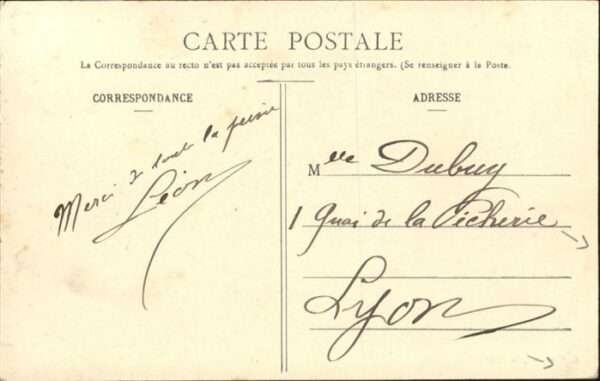 CARTE POSTALE
La Correspondance au recto n'est pas acceptée par tous les pays étrangers. (Se renseigner à la Poste.
CORRESPONDANCE
ADRESSE
Merci de tout la peine
Léon
Mlle Dubuy
1 Quai de la Pêcherie
Lyon